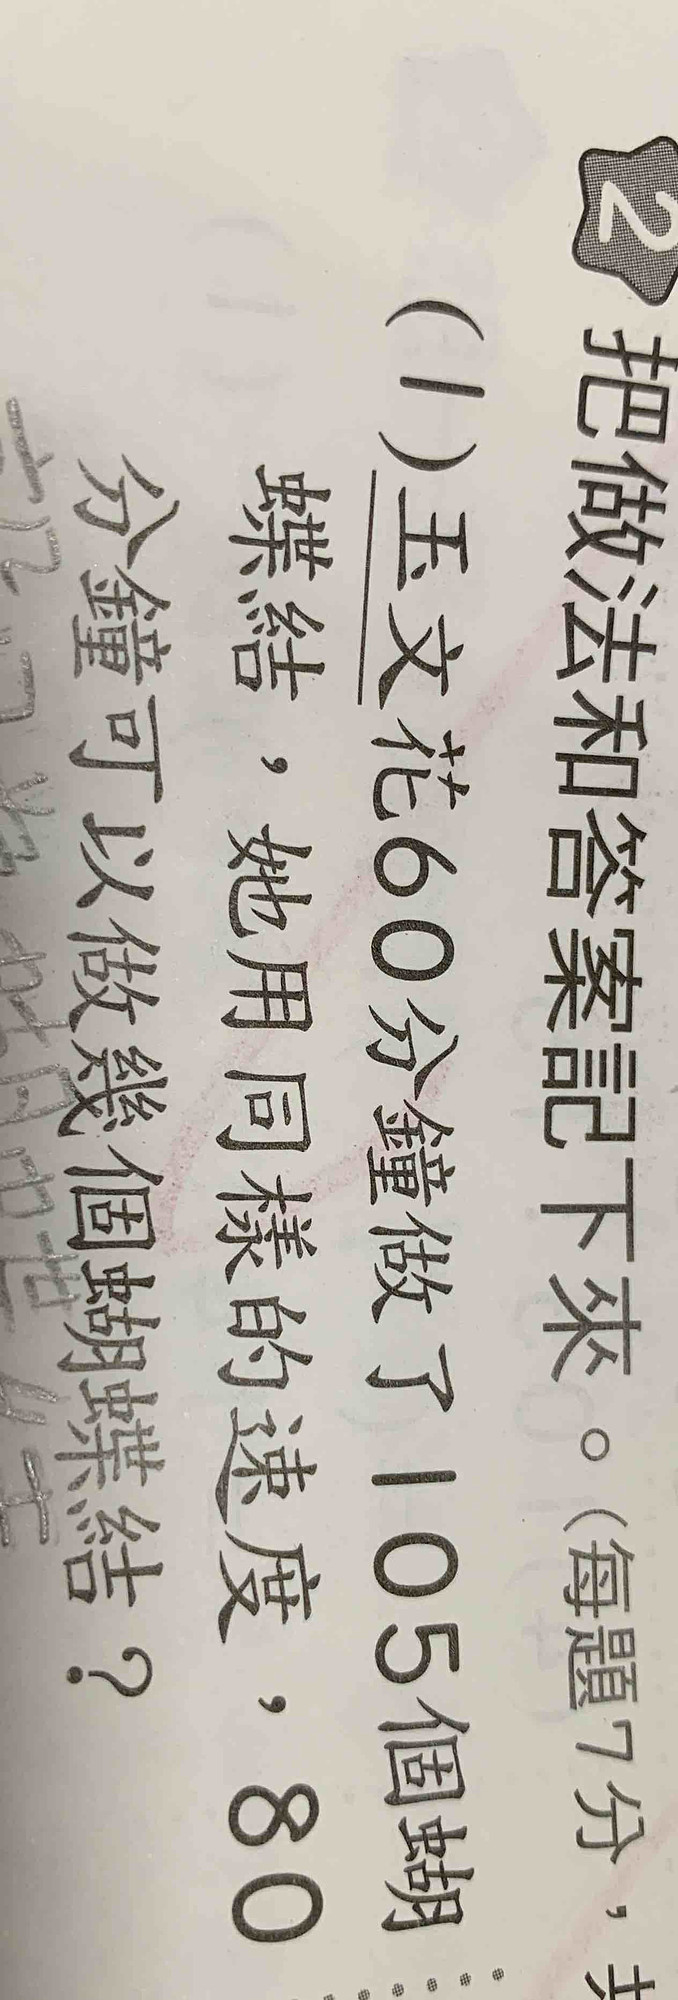 2 把做法和答案記下來。(每題7分,
(1)玉文花60分鐘做了105個蝴
蝶結,她用同樣的速度,80
分鐘可以做幾個蝴蝶結?